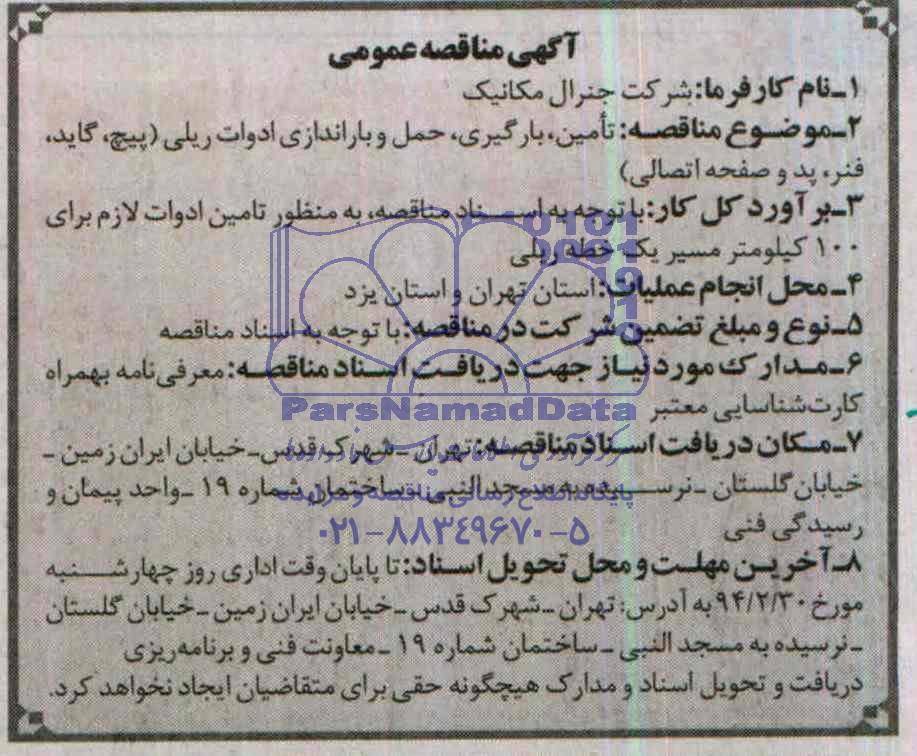 آگهی مناقصه عمومی
۱ـ نام کارفرما: شرکت جنرال مکانیک
۲ـ موضوع مناقصه: تأمین، بارگیری، حمل و باراندازی ادوات ریلی (پیچ، گاید،
فنر، پد و صفحه اتصالی)
۳ـ برآورد کل کار: با توجه به اسناد مناقصه، به منظور تامین ادوات لازم برای
۱۰۰ کیلومتر مسیر یک خطه ریلی
۴ـ محل انجام عملیات: استان تهران و استان یزد
۵ـ نوع و مبلغ تضمین شرکت در مناقصه: با توجه به اسناد مناقصه
۶ـ مدارک مورد نیاز جهت دریافت اسناد مناقصه: معرفی‌نامه بهمراه
کارت شناسایی معتبر
ParsNamadData
۷ـ مکان دریافت اسناد مناقصه: تهران ـ شهرک قدس ـ خیابان ایران زمین ـ
خیابان گلستان ـ نرسیده به مسجد النبی ـ ساختمان شماره ۱۹ ـ واحد پیمان و
پایگاه اطلاع رسانی مناقصه و مزایده
رسیدگی فنی
۰۲۱-۸۸۳۴۹۶۷۰-۵
۸ـ آخرین مهلت و محل تحویل اسناد: تا پایان وقت اداری روز چهارشنبه
مورخ ۹۴/۲/۳۰ به آدرس: تهران ـ شهرک قدس ـ خیابان ایران زمین ـ خیابان گلستان
ـ نرسیده به مسجد النبی ـ ساختمان شماره ۱۹ ـ معاونت فنی و برنامه‌ریزی
دریافت و تحویل اسناد و مدارک هیچگونه حقی برای متقاضیان ایجاد نخواهد کرد.